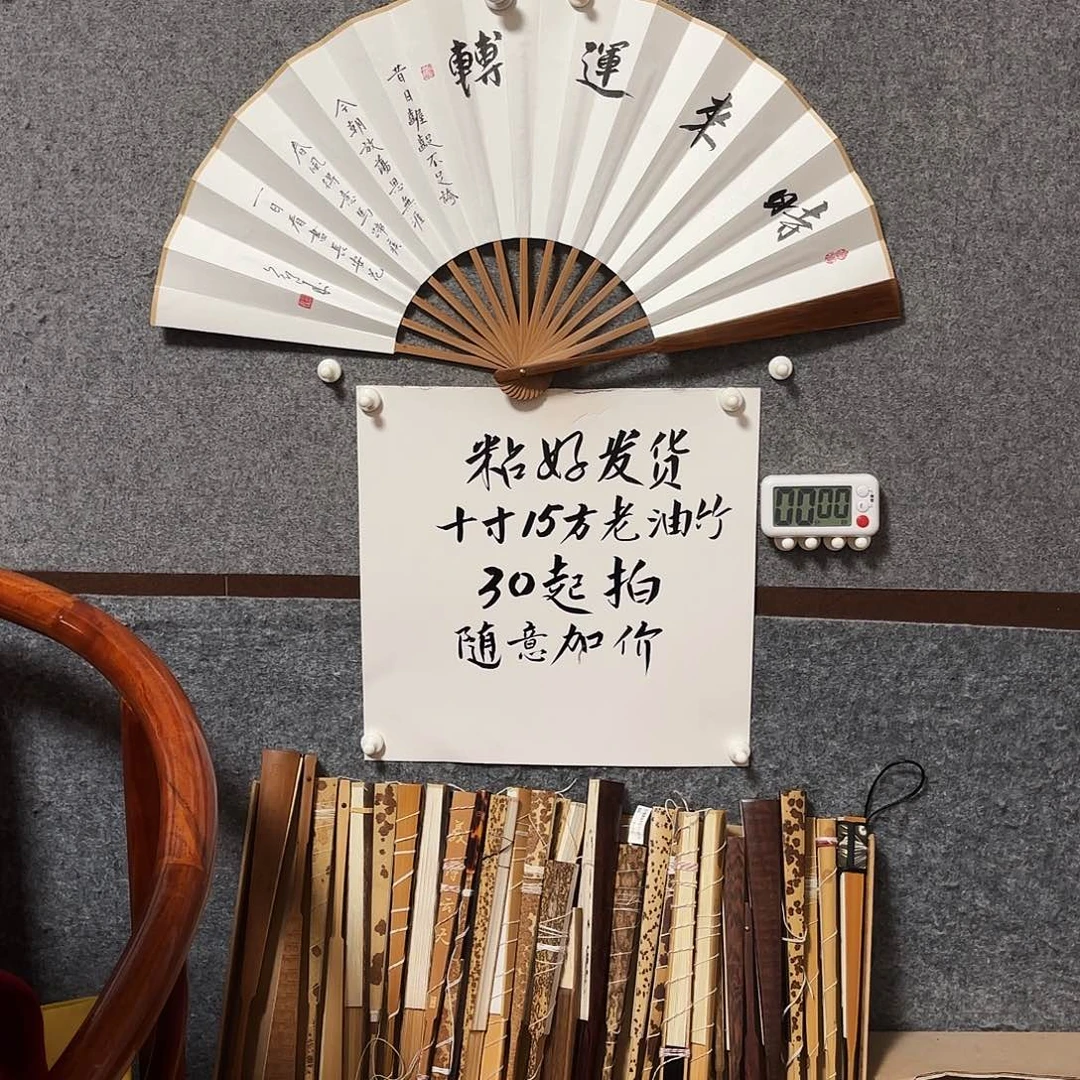 時来運轉
昔日齷齪不足誇
今朝放蕩思無涯
春風得意馬蹄疾
一日看盡長安花
粘好发货
十寸15方老油竹
30起拍
随意加价
00:00